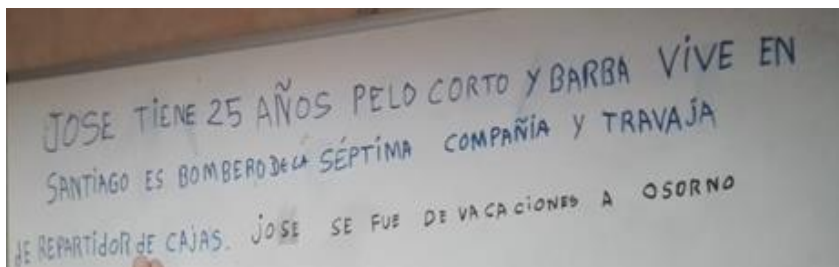 JOSE TIENE 25 AÑOS PELO CORTO Y BARBA VIVE EN
SANTIAGO ES BOMBERO DE LA SÉPTIMA COMPAÑIA Y TRAVAJA
DE REPARTIDOR DE CAJAS. JOSE SE FUE DE VACACIONES A OSORNO